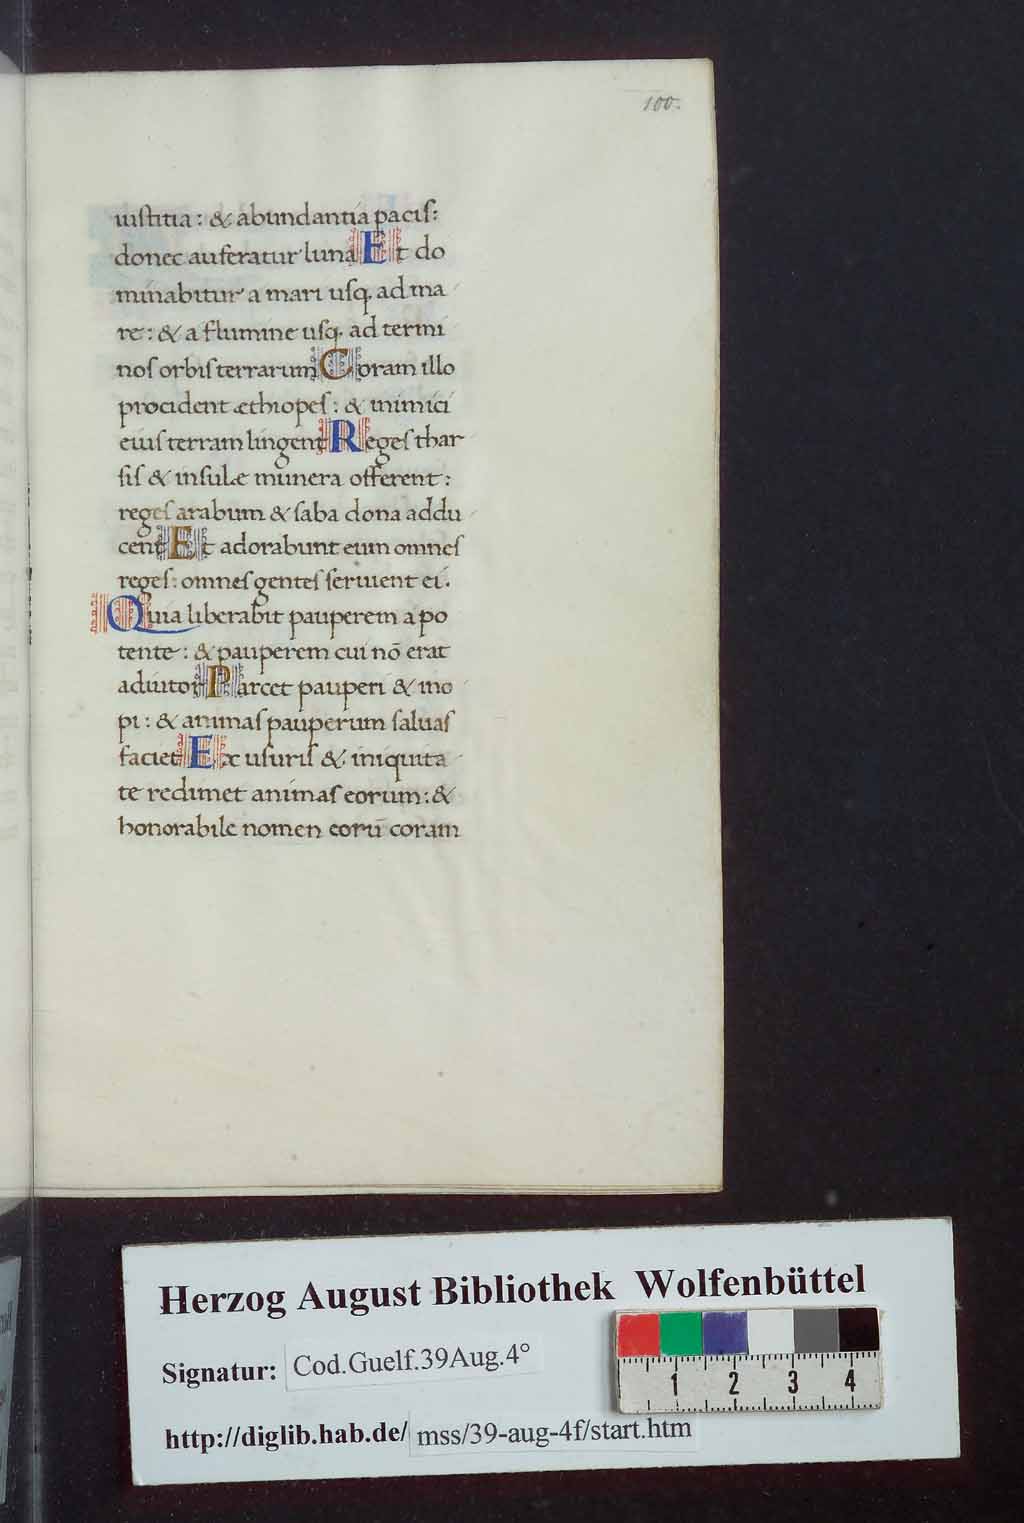 100.
iustitia: & abundantia pacis:
donec auferatur luna Et do
minabitur a mari usq. ad ma
re: & a flumine usq. ad termi
nos orbis terrarum Coram illo
procident æthiopes: & inimici
eius terram lingent Reges thar
sis & insulæ munera offerent:
reges arabum & saba dona addu
cent Et adorabunt eum omnes
reges: omnes gentes seruient ei.
Quia liberabit pauperem a po
tente: & pauperem cui nō erat
adiutor Parcet pauperi & ino
pi: & animas pauperum saluas
faciet Ex usuris & iniquita
te redimet animas eorum: &
honorabile nomen eorū coram
Herzog August Bibliothek Wolfenbüttel
Signatur: Cod.Guelf.39Aug.4°
1 2 3 4
http://diglib.hab.de/ mss/39-aug-4f/start.htm